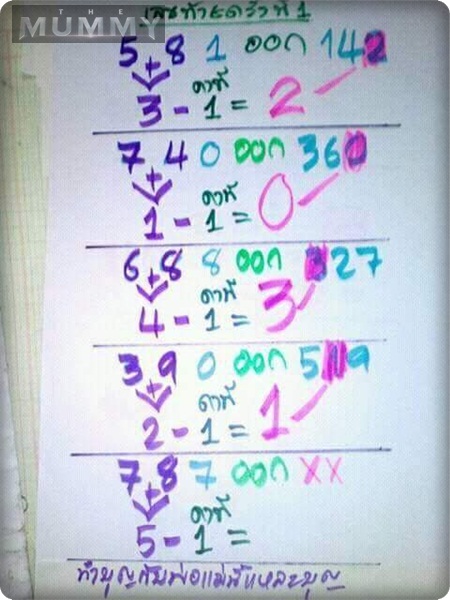 THE
MUMMY
เลขท้ายตัวที่ 1
5+8 1 ออก 142
คงที่
3 - 1 = 2
7+4 0 ออก 360
คงที่
1 - 1 = 0
6+8 8 ออก 327
คงที่
4 - 1 = 3
3+9 0 ออก 519
คงที่
2 - 1 = 1
7+8 7 ออก XX
คงที่
5 - 1 =
ทำบุญกับพ่อแม่ดีแหละบุญ